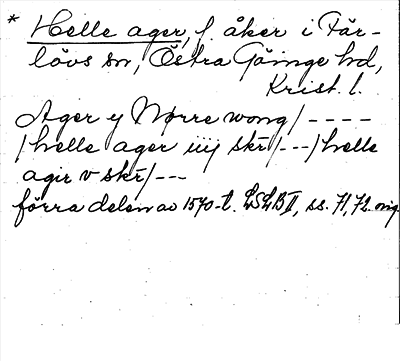 * Helle ager, f. åker i Fär-
lövs sn, Östra Göinge hd,
Krist. l.
Ager y Nørre wong/ - - - -
/ helle ager iiij skr/ - - -/ helle
agir v skr/ - - -
förra delen av 1570-t. LSLB II, ss. 71, 72. orig.